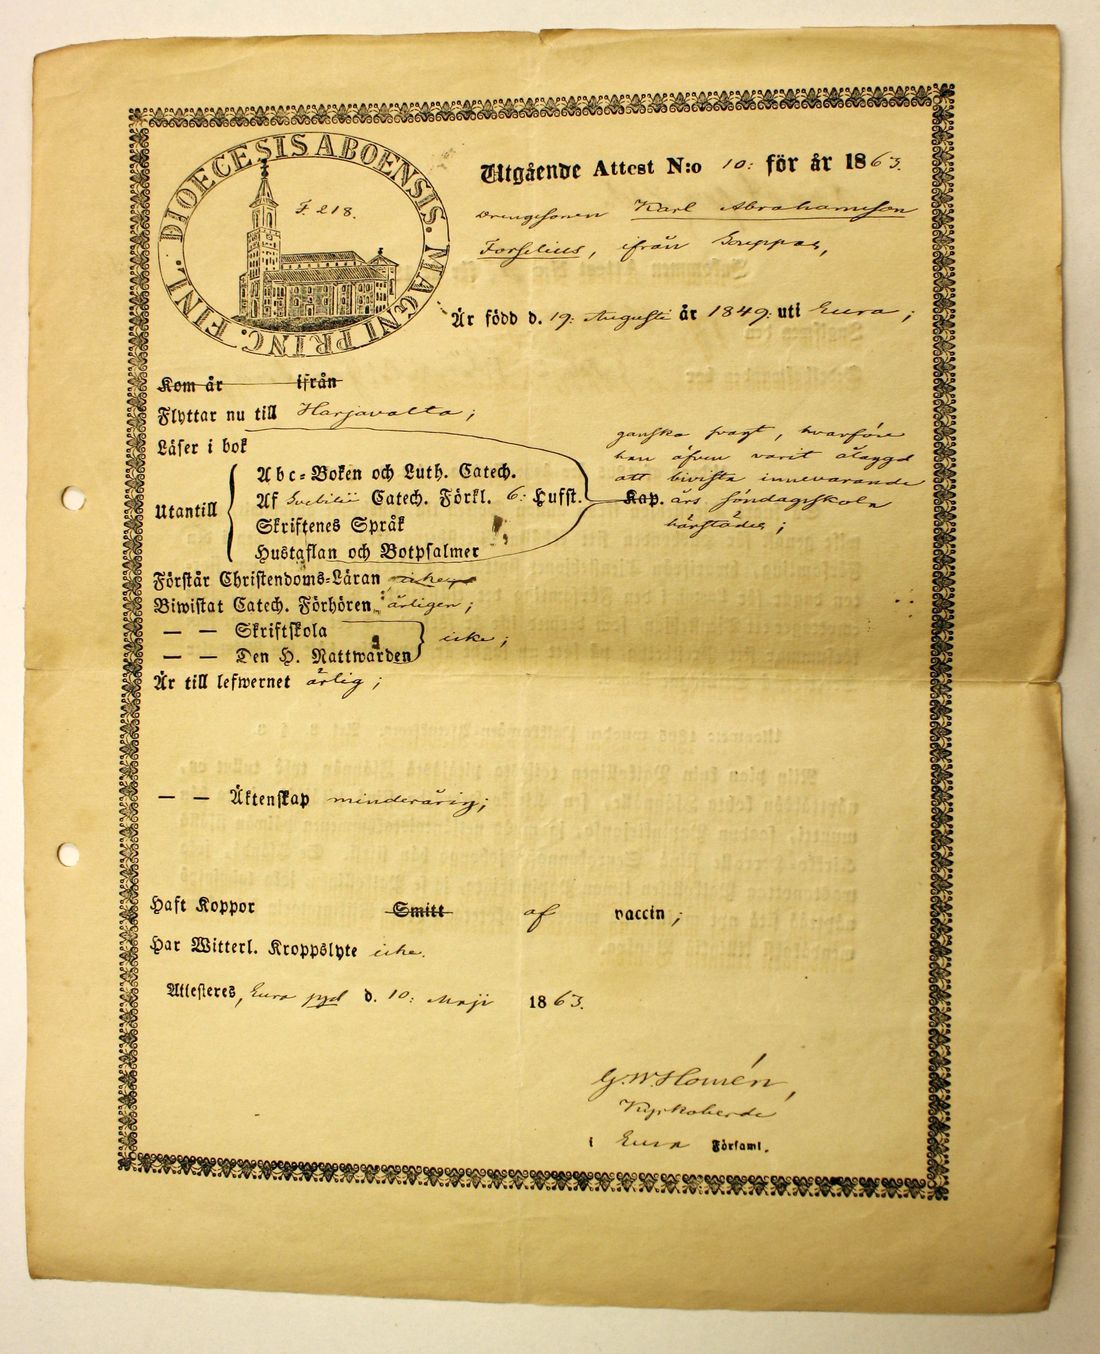 DIOECESIS ABOENSIS. MAGNI PRINC. FINL.
F. 218.
Utgående Attest N:o 10: för år 1863.
Drengsonen Karl Abrahamsson
Forselius, ifrån
Är född d. 19: Augusti år 1849. uti Eura;
Kom år ifrån
Flyttar nu till Harjavalta;
Läser i bok
Utantill
Abc-Boken och Luth. Catech.
Af Svebilii Catech. Förkl. 6: Hufst. Kap.
Skriftenes Språk
Hustaflan och Botpsalmer
ganska svagt, hvarföre
han äfven varit ålagd
att bivista innevarande
års söndagsskola
härstädes;
Förstår Christendoms-Läran
Biwistat Catech. Förhören årligen;
— — Skriftskola
— — Den H. Nattwarden
icke;
Är till lefwernet ärlig;
— — Äktenskap minderårig;
Haft Koppor Smitt af vaccin;
Har Witterl. Kroppslyte icke.
Attesteres, Eura pgd d. 10: Maji 1863.
G. W. Homén,
Kyrkoherde
i Eura Församl.